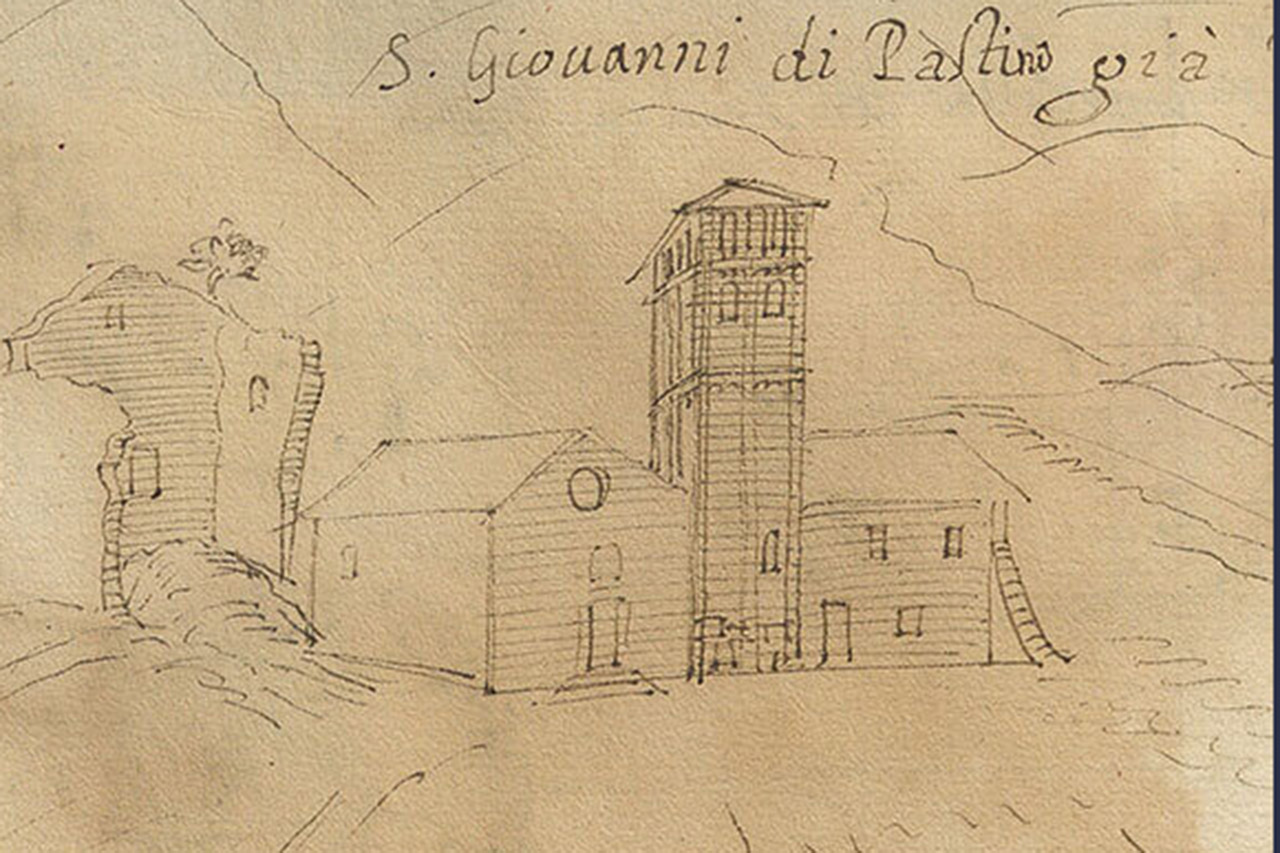 S. Giouanni di Pastino già